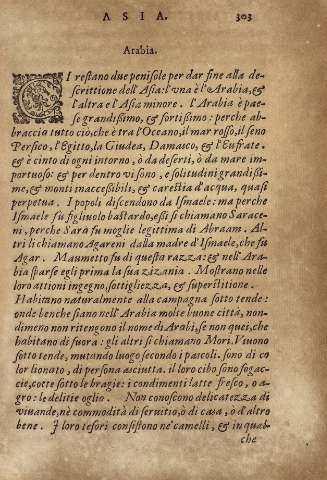 ASIA. 303
Arabia.
CI restano due penisole per dar fine alla de-
scrittione dell'Asia: l'vna è l'Arabia, &
l'altra e l'Asia minore. l'Arabia è pae-
se grandißimo, & fortißimo: perche ab-
braccia tutto ciò, che è tra l'Oceano, il mar rosso, il seno
Persico, l'Egitto, la Giudea, Damasco, & l'Eufrate.
& è cinto di ogni intorno, ò da deserti, ò da mare im-
portuoso: & per dentro vi sono, e solitudini grandißi-
me, & monti inaccessibili, & carestia d'acqua, quasi
perpetua. I popoli discendono da Ismaele: ma perche
Ismaele fu figliuolo bastardo, eßi si chiamano Sarace-
ni, perche Sara fu moglie legittima di Abraam. Al-
tri li chiamano Agareni dalla madre d'Ismaele, che fu
Agar. Maumetto fu di questa razza: & nell'Ara-
bia sparse egli prima la sua zizania. Mostrano nelle
loro attioni ingegno, sottigliezza, & superstitione.
Habitano naturalmente alla campagna sotto tende:
onde benche siano nell'Arabia molte buone città, non-
dimeno non ritengono il nome di Arabi, se non quei, che
habitano di fuora: gli altri si chiamano Mori. Viuono
sotto tende, mutando luogo secondo i pascoli. sono di co
lor lionato, di persona asciutta. il loro cibo sono fogac-
cie, cotte sotto le bragie: i condimenti latte fresco, o a-
gro: le delitie oglio. Non conoscono delicatezza di
viuande, nè commodità di seruitio, ò di casa, ò d'altro
bene. I loro tesori consistono ne' camelli, & in qual-
che